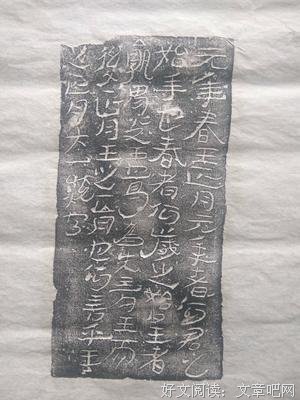 元年春王正月元年者何君之
始年也春者何歲之始也王者
孰謂文王也曷為先言王而
後言正月王正月也何言乎王
正月大一統也
好文阅读:文章吧网